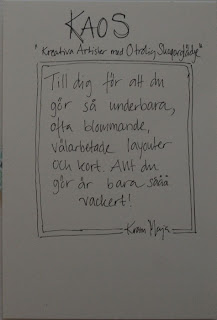 KAOS
"Kreativa Artister med Otrolig Skaparglädje"
Till dig för att du
gör så underbara,
ofta blommande,
välarbetade layouter
och kort. Allt du
gör är bara sååå
vackert!
Kram Maja